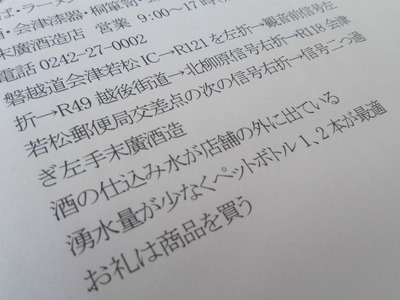 ば・ラーメン
・会津漆器・桐箪笥・会
末廣酒造店 営業 9:00～17時
電話 0242-27-0002
磐越道会津若松IC→R121を左折→観音前信号左
折→R49越後街道→北柳原信号右折→R118会津
若松郵便局交差点の次の信号右折→信号二つ過
ぎ左手末廣酒造
酒の仕込み水が店舗の外に出ている
湧水量が少なくペットボトル1、2本が最適
お礼は商品を買う